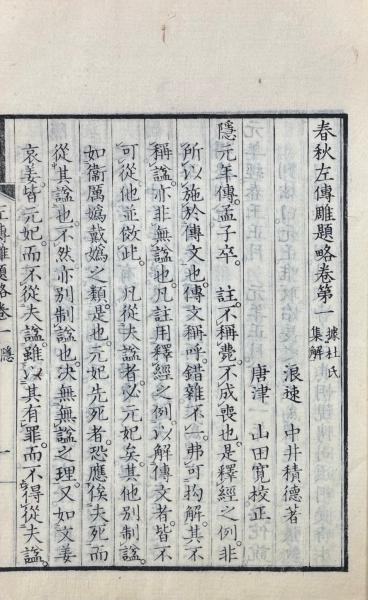 春秋左傳雕題略卷第一 據杜氏集解
浪速 中井積德著
唐津 山田寬校正
隱元年傳。孟子卒。 註。不稱薨。不成喪也。是釋經之例。非
所以施於傳文也。傳文稱呼。錯雜不一。弗可拘解。其不
稱謚。亦非無謚也。凡註用釋經之例。以解傳文者。皆不
可從。他並倣此。 凡從夫謚者。必元妃矣。其他別制謚。
如衞厲嬀戴嬀之類。是也。元妃先死者。恐應俟夫死而
從其謚也。不然亦別制謚也。決無無謚之理。又如文姜
哀姜。皆元妃。而不從夫謚。雖以其有罪。而不得從夫謚。
左傳雕題略卷一 隱 一